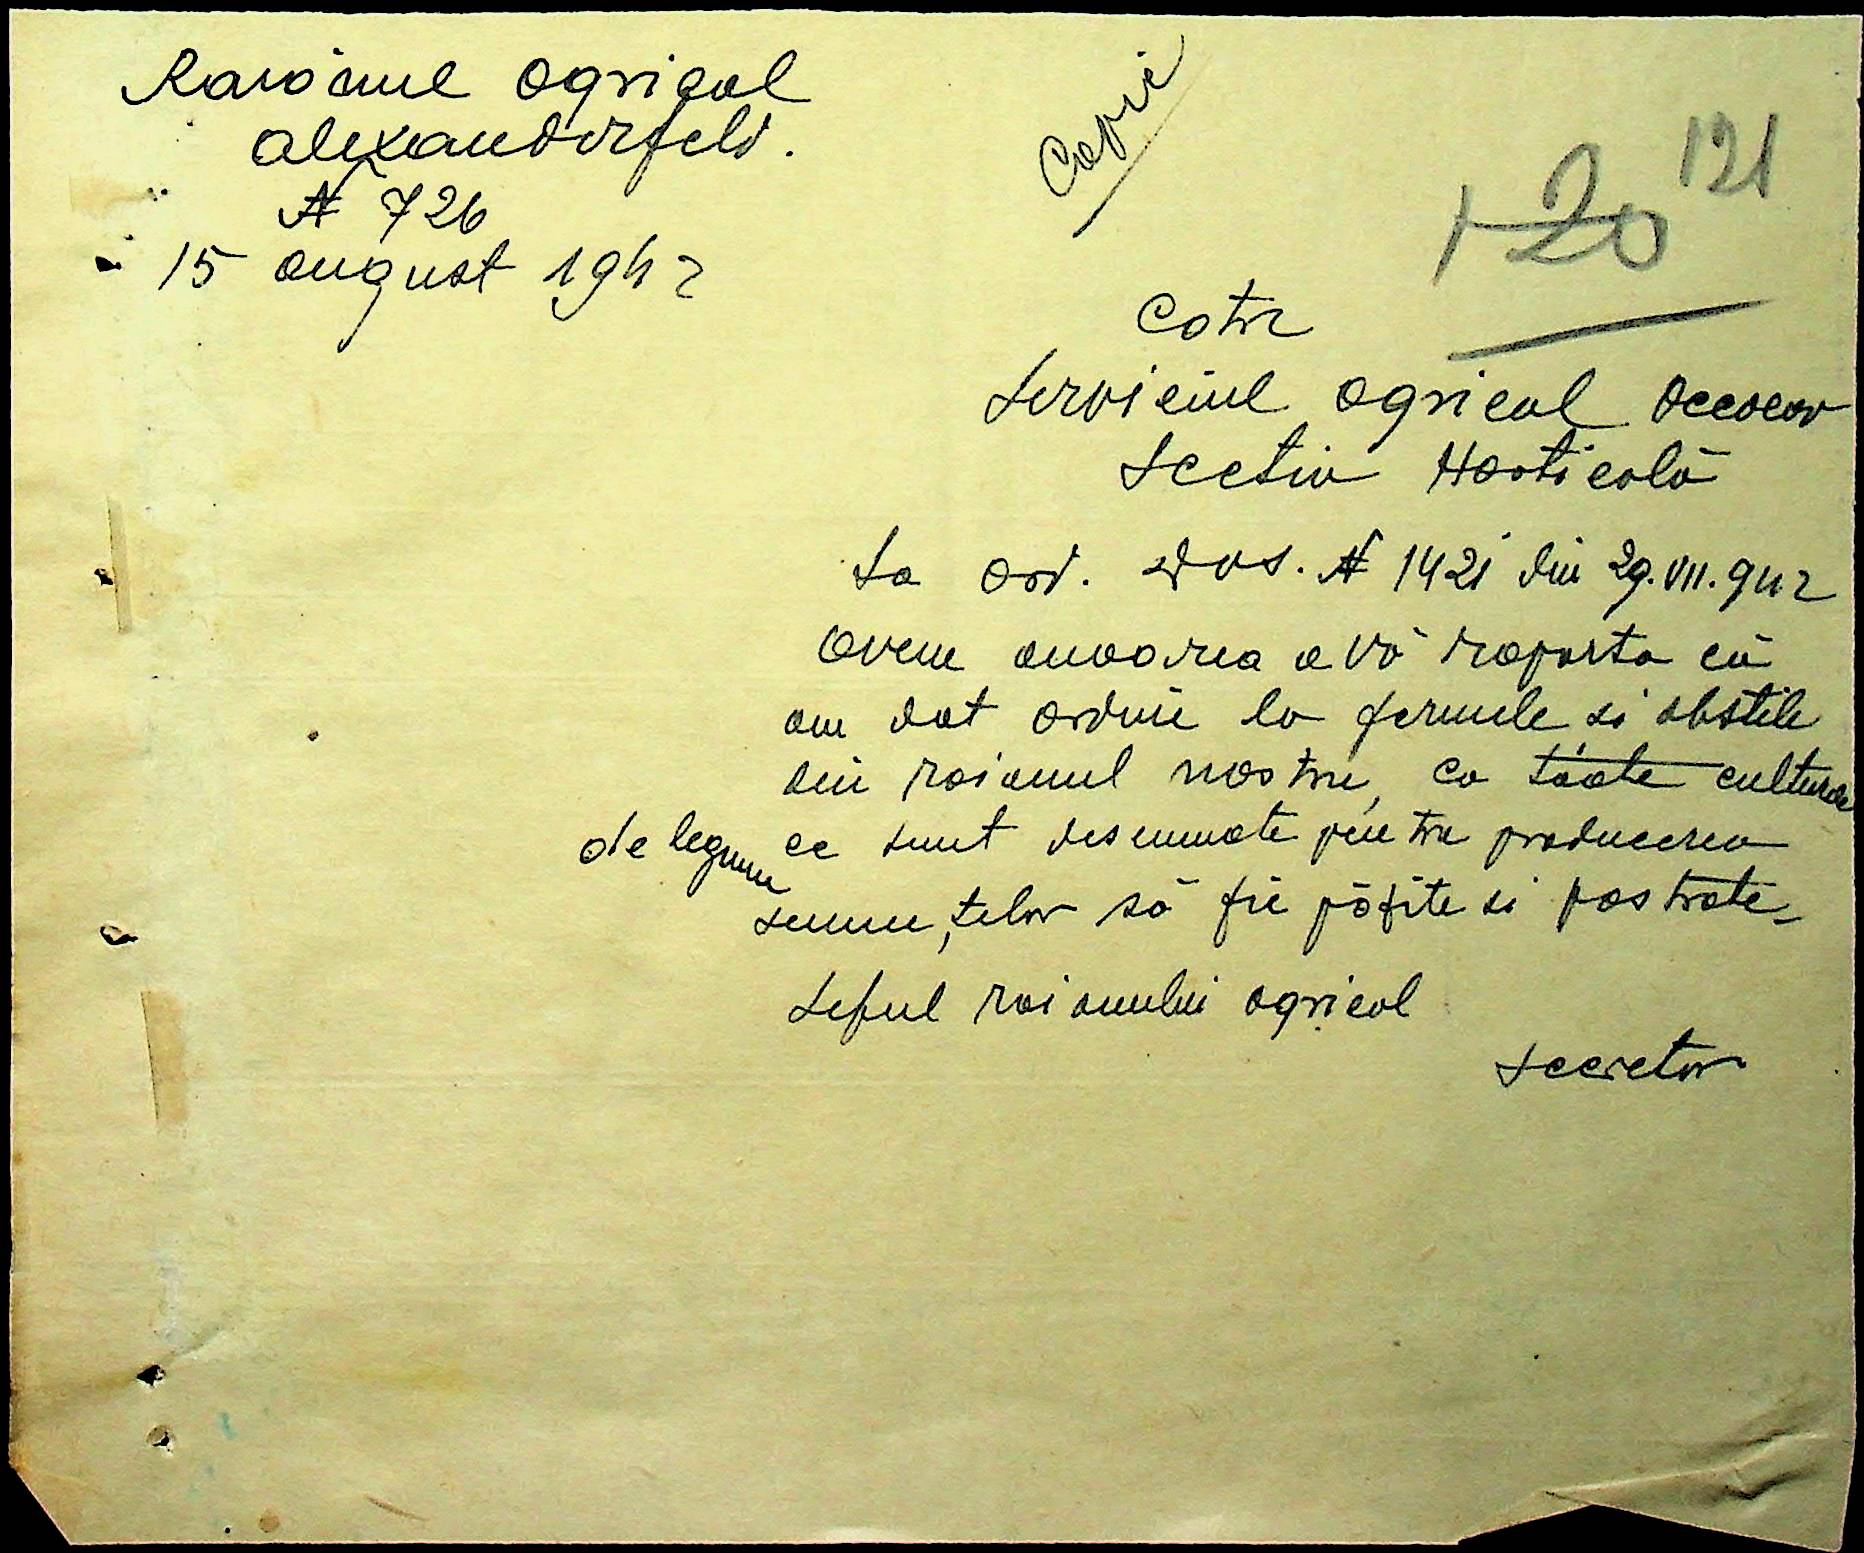 Raionul agricol
Alexanderfeld.
N 726
15 august 1942
Copie
120 121
Catre
Serviciul agricol Oceacov
Sectia Horticolă
La ord. Dvs. N 1421 din 29.VII.942
Avem onoarea a vă raporta că
am dat ordine la fermele si obstile
din raionul nostru, ca toate culturele
de legume ce sunt desemnate pentru producerea
semințelor să fie păzite si pastrate
Seful raionului agricol
Secretar